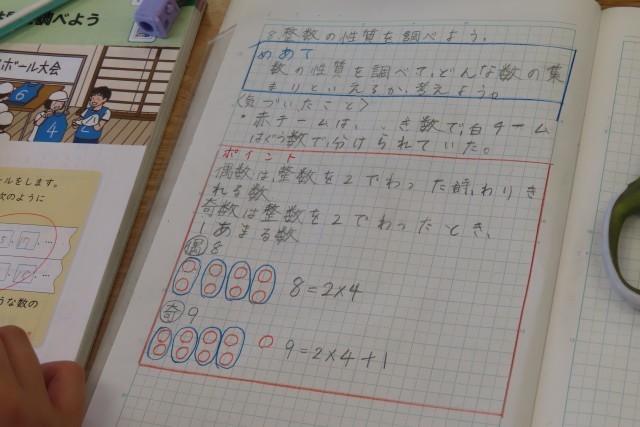 調べよう
ボール大会
6
4
ールをします。
次のように
17
うな数の
8 整数の性質を調べよう。
めあて
数の性質を調べて、どんな数の集
まりといえるか、考えよう。
〈気づいたこと〉
・赤チームは、き数で、白チーム
はぐう数で、分けられていた。
ポイント
偶数は、整数を2でわった時、わりき
れる数
奇数は整数を2でわったとき、
1あまる数
偶 8
8=2×4
奇 9
9=2×4+1